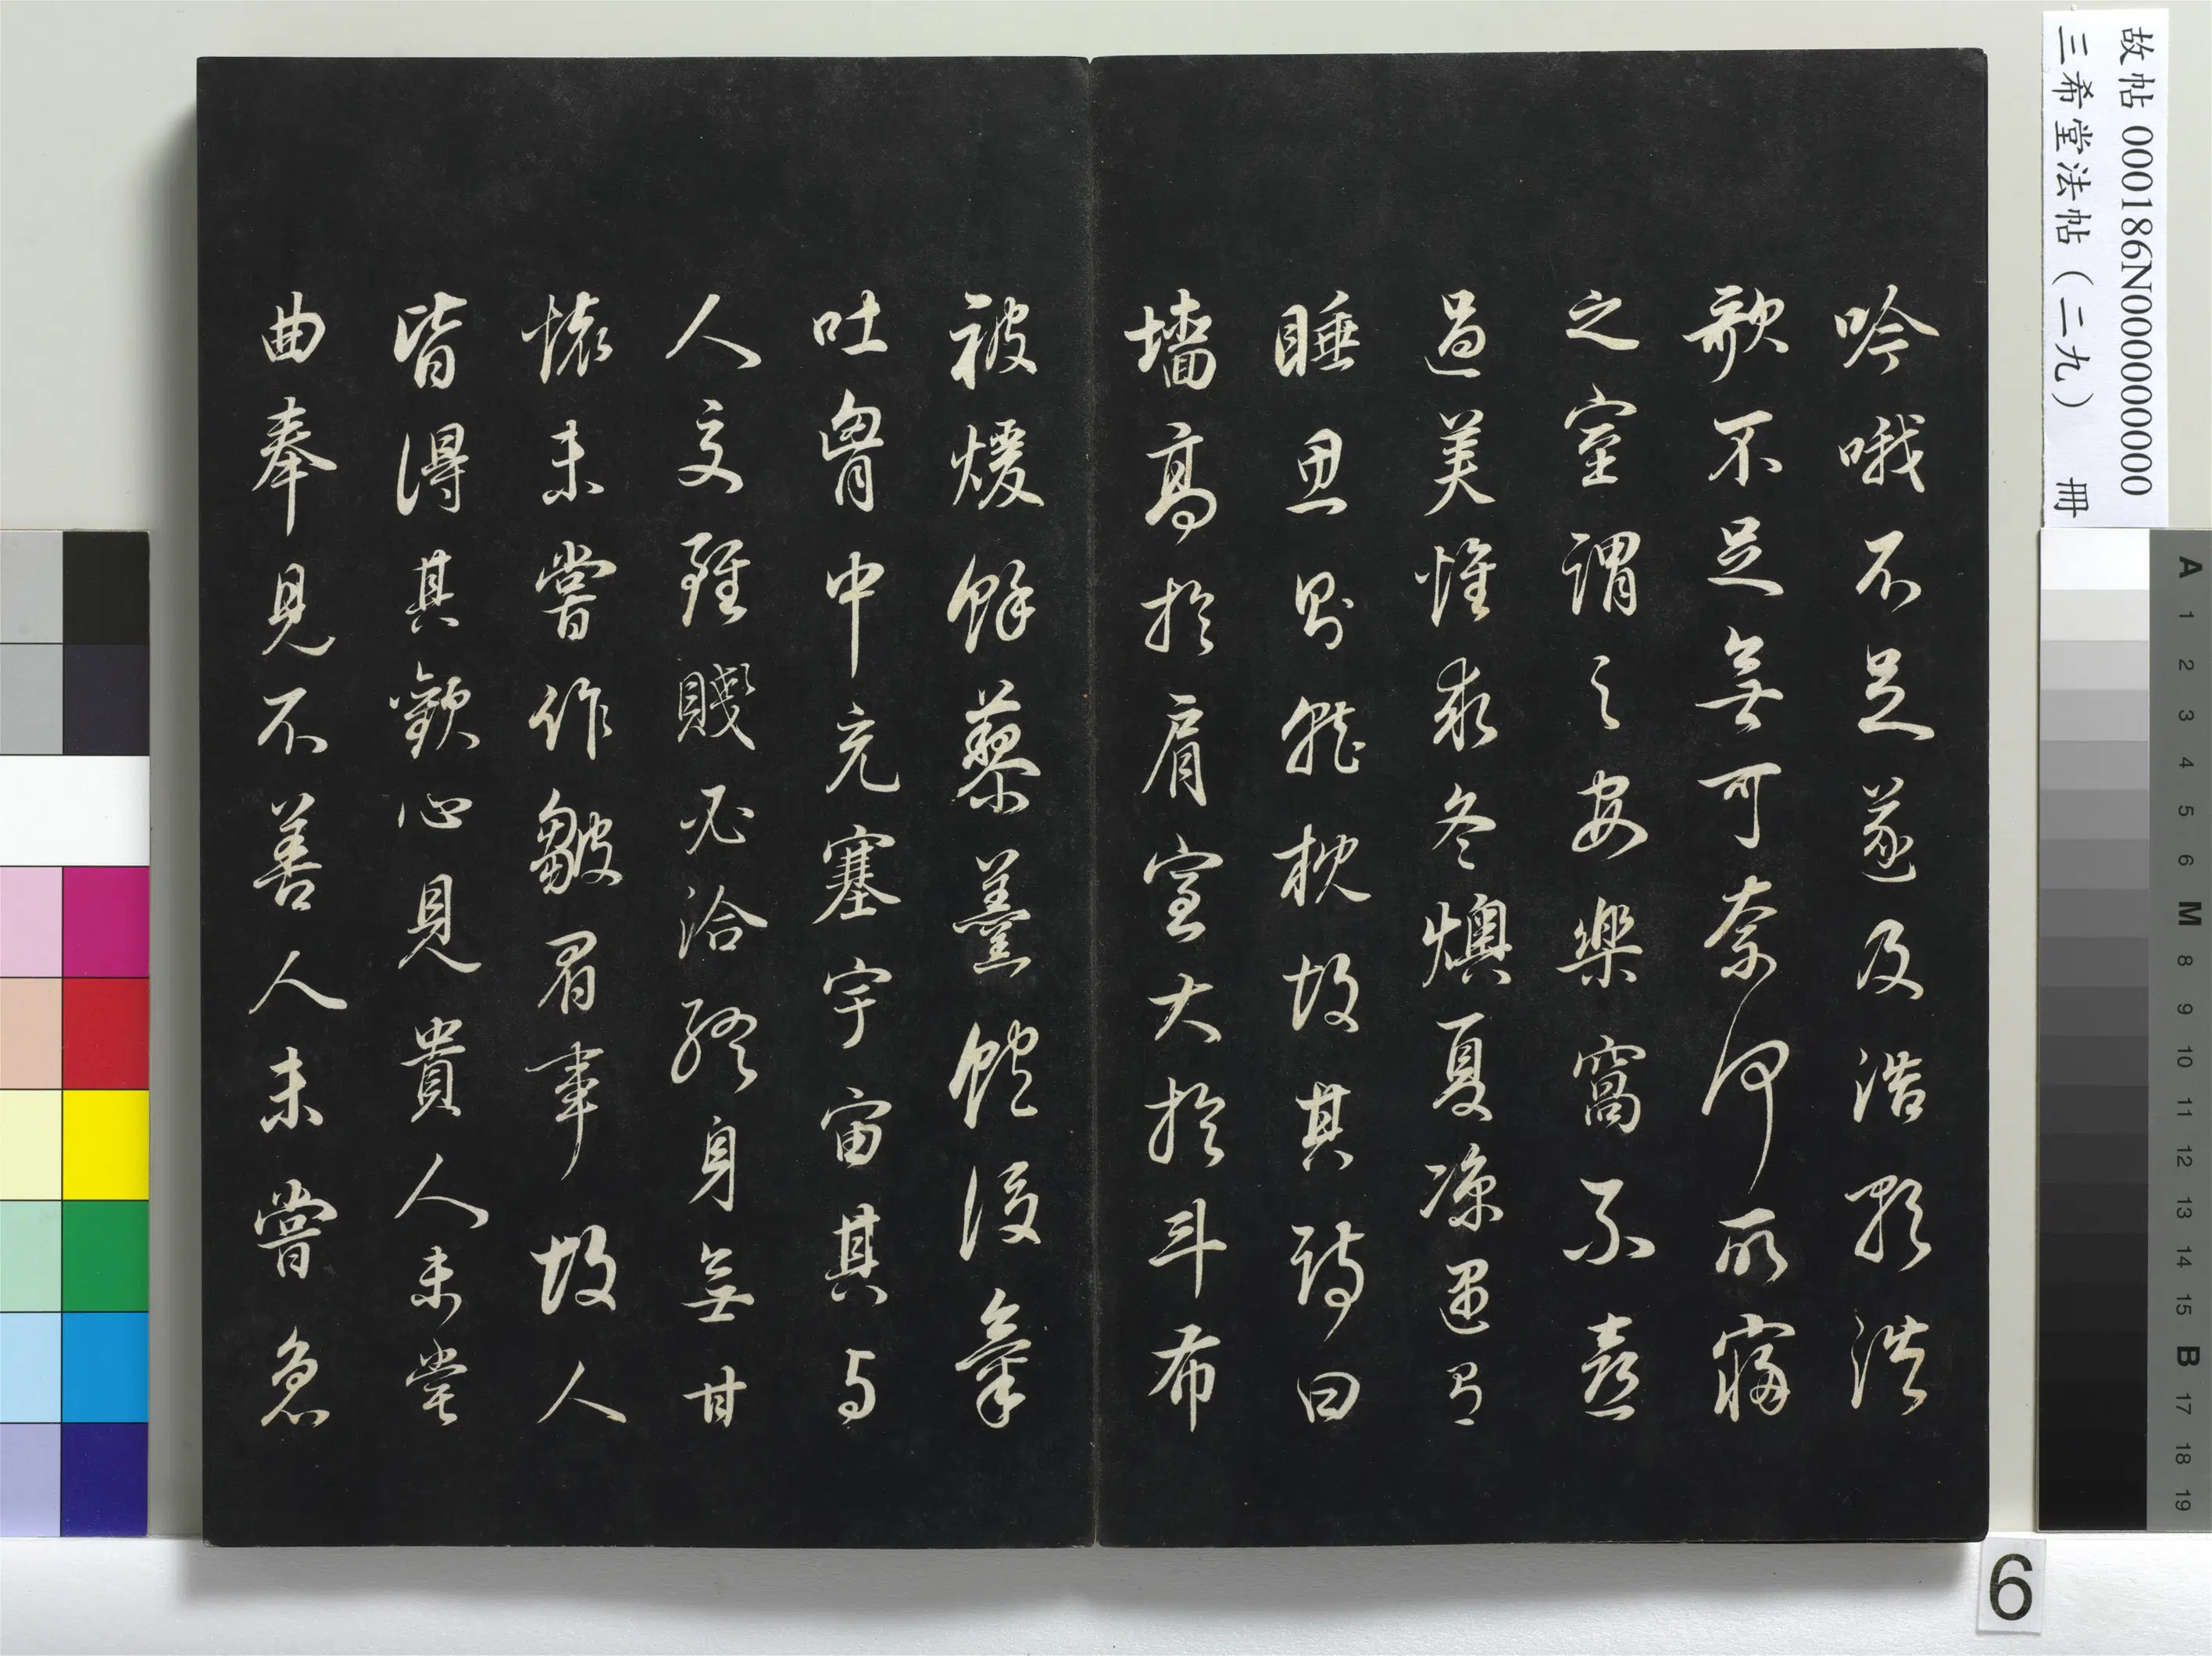 吟哦不足遂及浩歌浩
歌不足無可奈何所寢
之室謂之安樂窩不喜
過美惟求冬燠夏涼遇有
睡思則就枕故其詩曰
墻高於肩室大於斗布
被煖餘藜羹飽後氣
吐胷中充塞宇宙其与
人交雖賤必洽終身無甘
懷未嘗作皺眉事故人
皆得其歡心見貴人未嘗
曲奉見不善人未嘗急
故帖 000186N000000000
三希堂法帖（二九） 冊
A 1 2 3 4 5 6 M 8 9 10 11 12 13 14 15 B 17 18 19
6